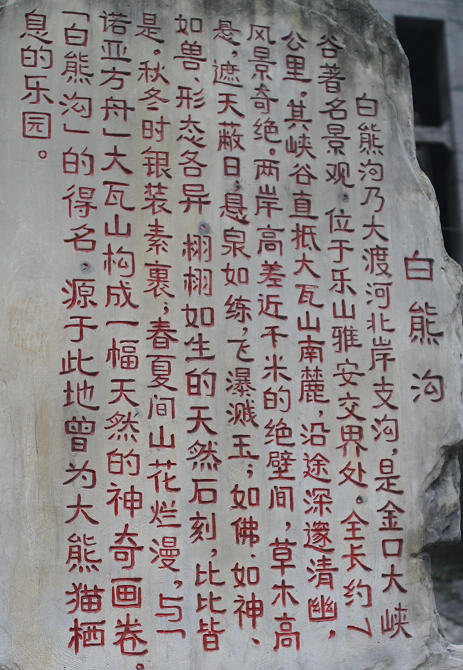 白熊沟
白熊沟乃大渡河北岸支沟，是金口大峡
谷著名景观，位于乐山雅安交界处。全长约7
公里，其峡谷直抵大瓦山南麓，沿途深邃清幽，
风景奇绝。两岸高差近千米的绝壁间，草木高
悬，遮天蔽日，悬泉如练，飞瀑溅玉；如佛、如神、
如兽，形态各异，栩栩如生的天然石刻，比比皆
是。秋冬时银装素裹；春夏间山花烂漫，与"
诺亚方舟"大瓦山构成一幅天然的神奇画卷。
「白熊沟」的得名，源于此地曾为大熊猫栖
息的乐园。